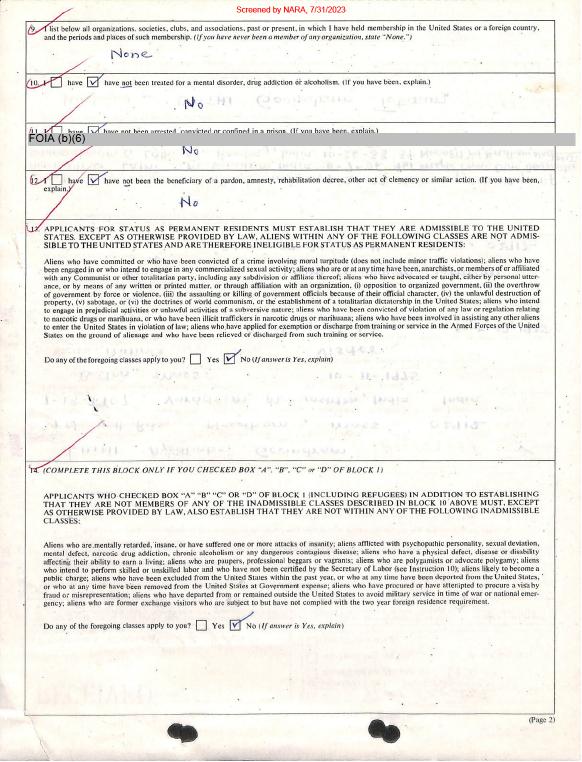 Screened by NARA, 7/31/2023
9. I list below all organizations, societies, clubs, and associations, past or present, in which I have held membership in the United States or a foreign country,
and the periods and places of such membership. (If you have never been a member of any organization, state "None.")
None
10. I have have not been treated for a mental disorder, drug addiction or alcoholism. (If you have been, explain.)
No
11. I have have not been arrested, convicted or confined in a prison. (If you have been, explain.)
FOIA (b)(6)
No
12. I have have not been the beneficiary of a pardon, amnesty, rehabilitation decree, other act of clemency or similar action. (If you have been,
explain.)
No
13. APPLICANTS FOR STATUS AS PERMANENT RESIDENTS MUST ESTABLISH THAT THEY ARE ADMISSIBLE TO THE UNITED
STATES. EXCEPT AS OTHERWISE PROVIDED BY LAW, ALIENS WITHIN ANY OF THE FOLLOWING CLASSES ARE NOT ADMIS-
SIBLE TO THE UNITED STATES AND ARE THEREFORE INELIGIBLE FOR STATUS AS PERMANENT RESIDENTS:
Aliens who have committed or who have been convicted of a crime involving moral turpitude (does not include minor traffic violations); aliens who have
been engaged in or who intend to engage in any commercialized sexual activity; aliens who are or at any time have been, anarchists, or members of or affiliated
with any Communist or other totalitarian party, including any subdivision or affiliate thereof; aliens who have advocated or taught, either by personal utter-
ance, or by means of any written or printed matter, or through affiliation with an organization, (i) opposition to organized government, (ii) the overthrow
of government by force or violence, (iii) the assaulting or killing of government officials because of their official character, (iv) the unlawful destruction of
property, (v) sabotage, or (vi) the doctrines of world communism, or the establishment of a totalitarian dictatorship in the United States; aliens who intend
to engage in prejudicial activities or unlawful activities of a subversive nature; aliens who have been convicted of violation of any law or regulation relating
to narcotic drugs or marihuana, or who have been illicit traffickers in narcotic drugs or marihuana; aliens who have been involved in assisting any other aliens
to enter the United States in violation of law; aliens who have applied for exemption or discharge from training or service in the Armed Forces of the United
States on the ground of alienage and who have been relieved or discharged from such training or service.
Do any of the foregoing classes apply to you? Yes No (If answer is Yes, explain)
14. (COMPLETE THIS BLOCK ONLY IF YOU CHECKED BOX "A", "B", "C" or "D" OF BLOCK 1)
APPLICANTS WHO CHECKED BOX "A" "B" "C" OR "D" OF BLOCK 1 (INCLUDING REFUGEES) IN ADDITION TO ESTABLISHING
THAT THEY ARE NOT MEMBERS OF ANY OF THE INADMISSIBLE CLASSES DESCRIBED IN BLOCK 10 ABOVE MUST, EXCEPT
AS OTHERWISE PROVIDED BY LAW, ALSO ESTABLISH THAT THEY ARE NOT WITHIN ANY OF THE FOLLOWING INADMISSIBLE
CLASSES:
Aliens who are mentally retarded, insane, or have suffered one or more attacks of insanity; aliens afflicted with psychopathic personality, sexual deviation,
mental defect, narcotic drug addiction, chronic alcoholism or any dangerous contagious disease; aliens who have a physical defect, disease or disability
affecting their ability to earn a living; aliens who are paupers, professional beggars or vagrants; aliens who are polygamists or advocate polygamy; aliens
who intend to perform skilled or unskilled labor and who have not been certified by the Secretary of Labor (see Instruction 10); aliens likely to become a
public charge; aliens who have been excluded from the United States within the past year, or who at any time have been deported from the United States,
or who at any time have been removed from the United States at Government expense; aliens who have procured or have attempted to procure a visa by
fraud or misrepresentation; aliens who have departed from or remained outside the United States to avoid military service in time of war or national emer-
gency; aliens who are former exchange visitors who are subject to but have not complied with the two year foreign residence requirement.
Do any of the foregoing classes apply to you? Yes No (If answer is Yes, explain)
(Page 2)